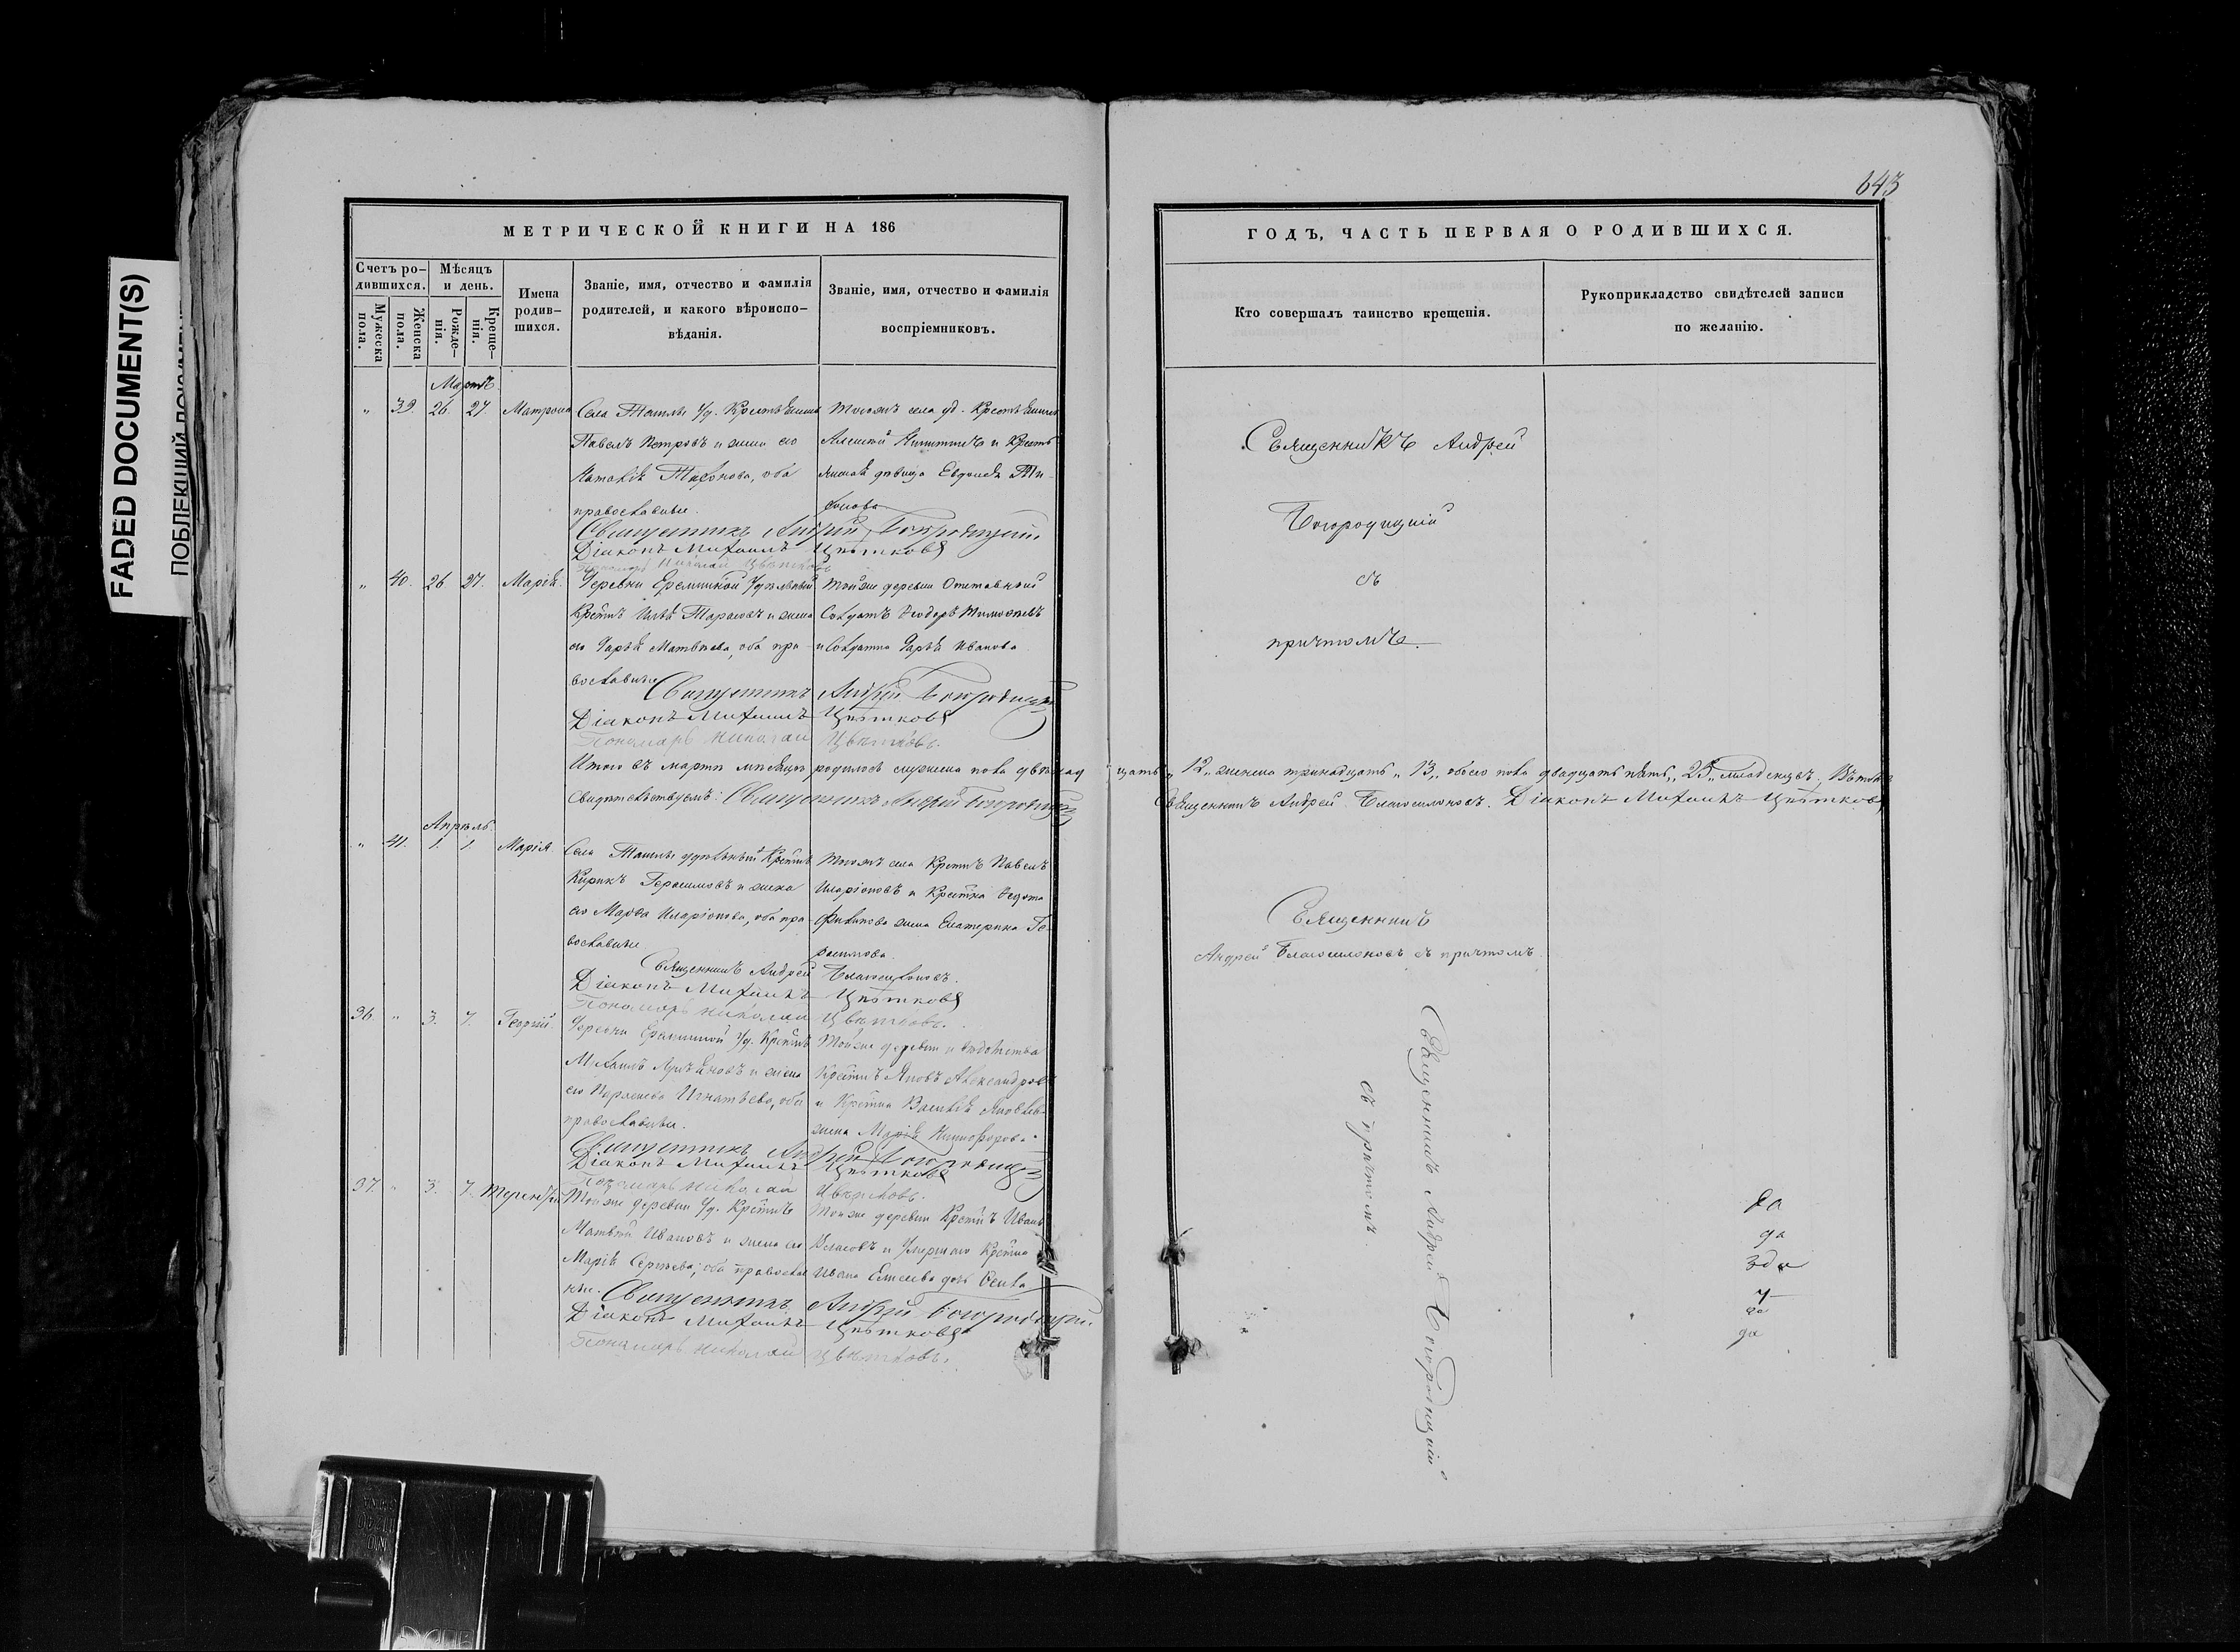 FADED DOCUMENT(S)
643
МЕТРИЧЕСКОЙ КНИГИ НА 186
ГОДЪ, ЧАСТЬ ПЕРВАЯ О РОДИВШИХСЯ.
Счетъ ро-
дившихся.
Мужеска
пола.
Женска
пола.
Мѣсяцъ
и день.
Рожде-
нія.
Креще-
нія.
Имена
родив-
шихся.
Званіе, имя, отчество и фамилія
родителей, и какого вѣроиспо-
вѣданія.
Званіе, имя, отчество и фамилія
воспріемниковъ.
Кто совершалъ таинство крещенія.
Рукоприкладство свидѣтелей записи
по желанію.
Мартъ
" 39. 26. 27. Матрона
Села Ташлы уд. Крестьянинъ
Павелъ Петровъ и жена его
Наталія Тихонова, оба
православные.
Тогожъ села уд. Крестьянинъ
Алексѣй Никитинъ и Кресть
янская дѣвица Евдокія Ти-
хонова
Священникъ Андрей Богородицкій
Діаконъ Михаилъ Цвѣтковъ
Пономарь Николай Цвѣтковъ
Священникъ Андрей
Богородицкій
съ
причтомъ.
" 40. 26 27. Марія.
Деревни Еремкиной Удѣльный
Крестнъ Илья Тарасовъ и жена
его Дарья Матвѣева, оба пра-
вославные
Тойже деревни Отставной
Солдатъ Ѳеодоръ Тимоѳеевъ
и Солдатка Дарья Иванова
Священникъ Андрей Богородицкій
Діаконъ Михаилъ Цвѣтковъ
Пономарь Николай Цвѣтковъ.
Итого въ мартѣ мѣсяцѣ родилось мужеска пола двѣнад
цать " 12 " женска тринадцать " 13 " обоего пола двадцать пять " 25 " младенцевъ. Въ томъ
свидѣтельствуемъ: Священникъ Андрей Богородицкій
Священникъ Андрей Благосклоновъ. Діаконъ Михаилъ Цвѣтковъ
Апрѣль.
" 41. 1. 1. Марія.
Села Ташлы удѣльный Крестнъ
Кирикъ Герасимовъ и жена
его Марѳа Иларіонова, оба пра-
вославные
Тогожъ села Крестнъ Павелъ
Иларіоновъ и Крестка Ѳедота
Филипова жена Екатерина Ге-
расимова.
Священникъ Андрей Благосклоновъ.
Діаконъ Михаилъ Цвѣтковъ
Пономарь Николай Цвѣтковъ.
Священникъ
Андрей Благосклоновъ съ причтомъ.
36. " 3. 7. Георгій.
Деревни Еремкиной уд. Крестнъ
Михаилъ и жена
его Игнатьева, оба
православные.
Тойже деревни и вѣдомства
Крестнъ Яковъ Александровъ
и Крестка
жена Марія Никифорова.
Священникъ Андрей Богородицкій
Діаконъ Михаилъ Цвѣтковъ
Пономарь Николай Цвѣтковъ.
Священникъ Андрей Богородицкій
съ причтомъ
37. " 3. 7. Терентій
Тойже деревни уд. Крестнъ
Матвѣй Ивановъ и жена его
Марія Сергѣева, оба православ
ные.
Тойже деревни Крестнъ Иванъ
Власовъ и умершаго Крестна
Ивана Елисеева дочь
Священникъ Андрей Богородицкій
Діаконъ Михаилъ Цвѣтковъ
Пономарь Николай Цвѣтковъ.
да
да
да